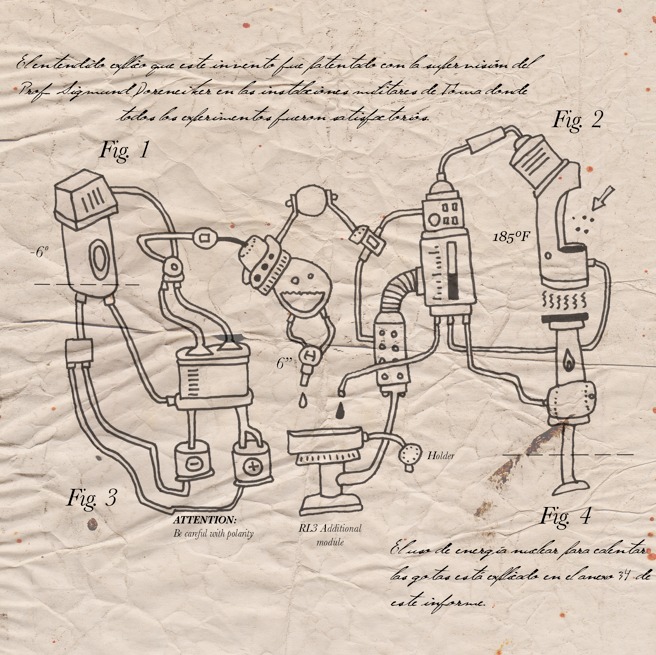 El entendido explico que este invento fue patentado con la supervisión del
Prof Sigmund Doreneither en las instalciones militares de Toma donde
todos los experimentos fueron satisfactorios.
Fig. 1
Fig. 2
-6º
185ºF
6''
Holder
Fig. 3
ATTENTION:
Be careful with polarity
RL3 Additional
module
Fig. 4
El uso de energia nuclear para calentar
las gotas está explicado en el anexo 34 de
este informe.